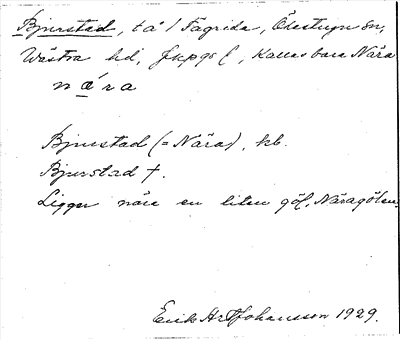 Bjurstad, t å / Fågrida, Ödestugu sn,
Västra hd, Jkpgs l, Kallas bara Nära
næra
Bjurstad (= Nära), kb.
Bjurstad †.
Ligger nära en liten göl, Näragölen.
Erik Hr Johansson 1929.